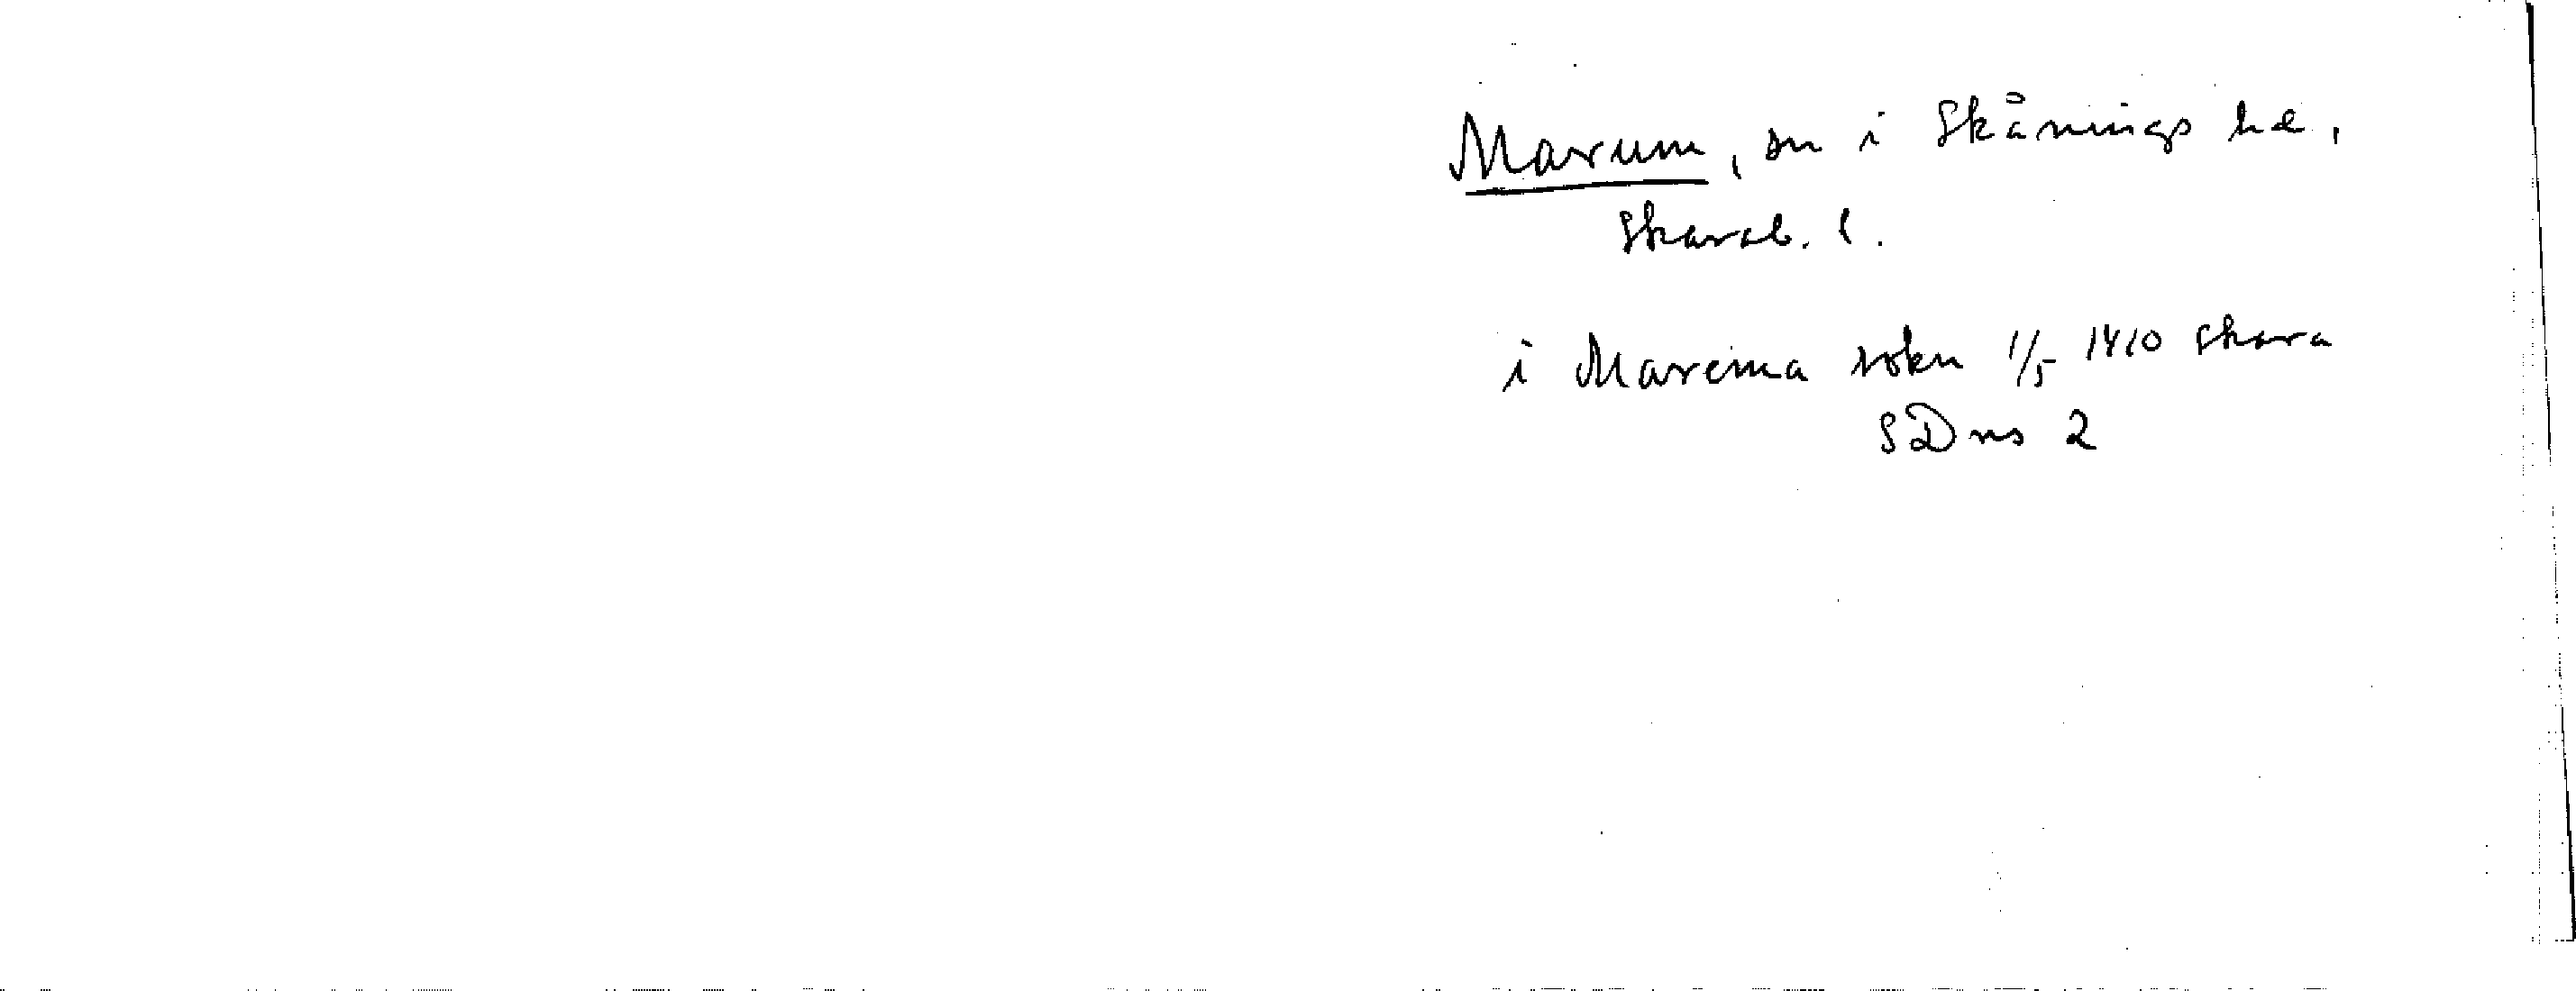 Marum, sn i Skånings hd,
Skarab. l.
i Marema sokn 1/5 1410 Skara
SDns 2